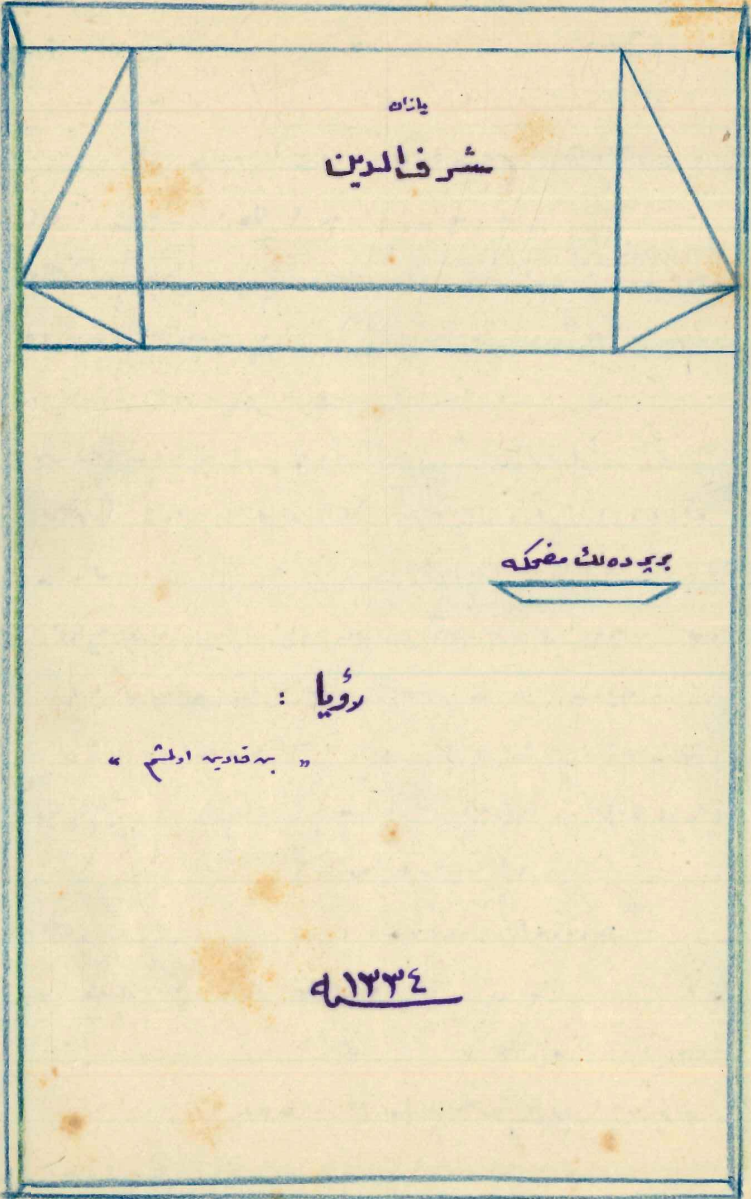 يازان
شرف الدين
بر پرده لك مضحكه
رؤيا :
„ بن قادين اولمشم “
سنه ١٣٣٤